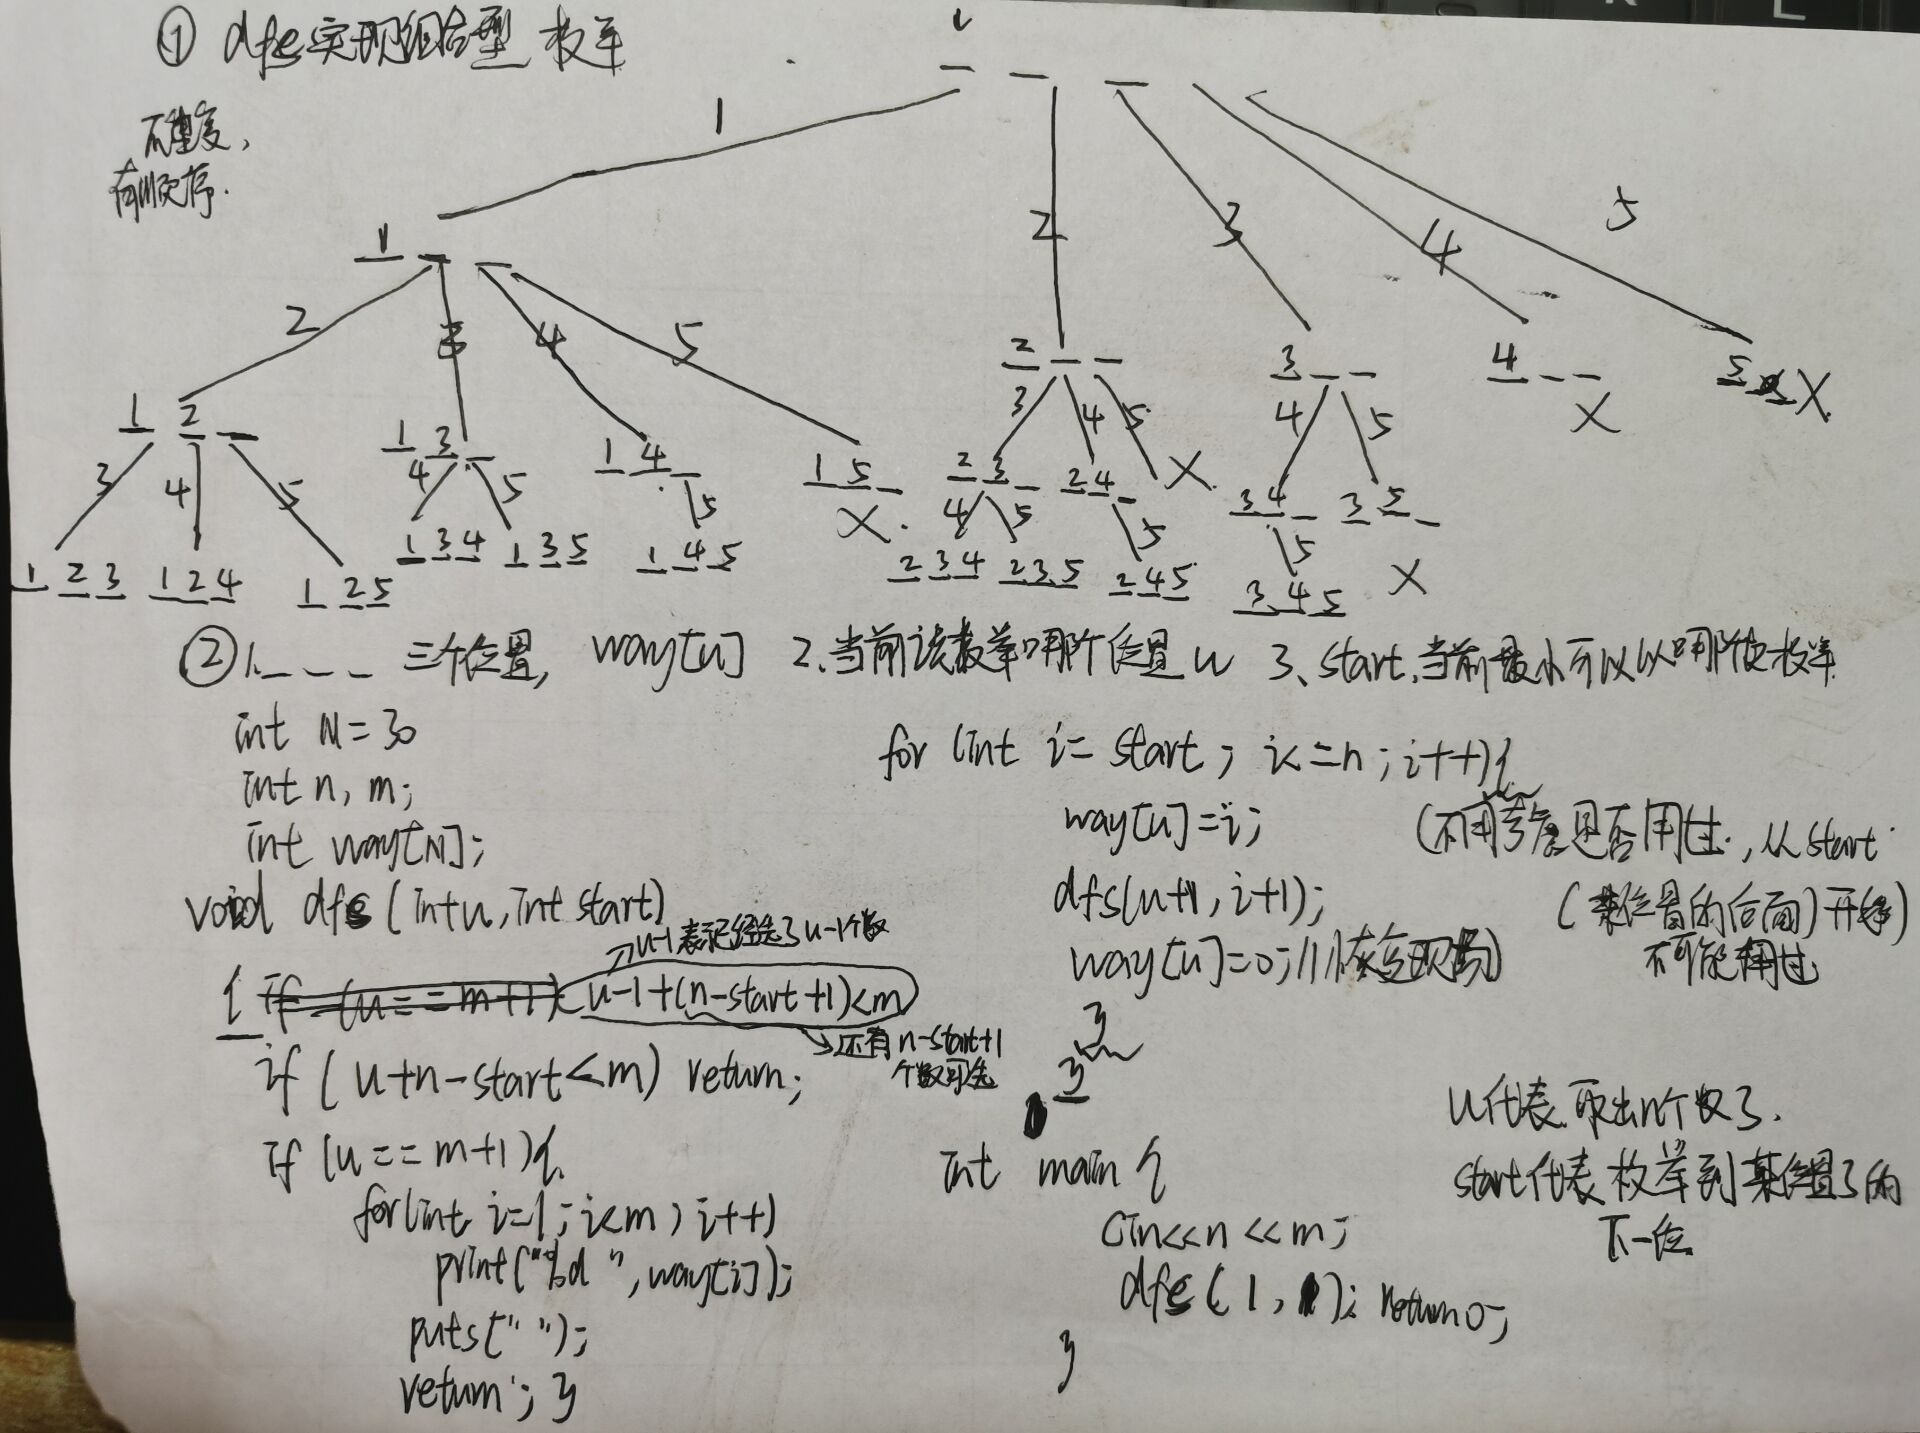 ① dfs实现组合型 枚举
不重复,
有顺序.
1 2 3 4 5
1 _ _
2 3 4 5
2 _ _ 3 _ _ 4 _ _ X 5 X
3 4 5 4 5
1 2 _ 1 3 _ 1 4 _ 1 5 _ X 2 3 _ 2 4 _ X 3 4 _ 3 5 _ X
3 4 5 4 5 5 4 5 5 5
1 2 3 1 2 4 1 2 5 1 3 4 1 3 5 1 4 5 2 3 4 2 3 5 2 4 5 3 4 5
② 1. _ _ _ 三个位置, way[u] 2、当前该枚举哪个位置 u 3、start,当前最小可以从哪个数枚举
int N=30
int n, m;
int way[N];
void dfs (int u, int start)
→u-1表示已经选了u-1个数
{ if (u==m+1) u-1+(n-start+1)<m
→还有n-start+1
个数可选
if (u+n-start<m) return;
if (u==m+1){
for(int i=1;i<m;i++)
print("%d ",way[i]);
puts(" ");
return; }
for (int i=start; i<=n;i++){
way[u]=i; (不用考虑是否用过,从start
(某位置的后面)开始)
不可能用过
dfs(u+1,i+1);
way[u]=0;//恢复现场)
}
}
int main {
cin<<n<<m;
dfs(1,1); return 0;
}
u代表取出n个数了.
start代表枚举到某位置了的
下一位